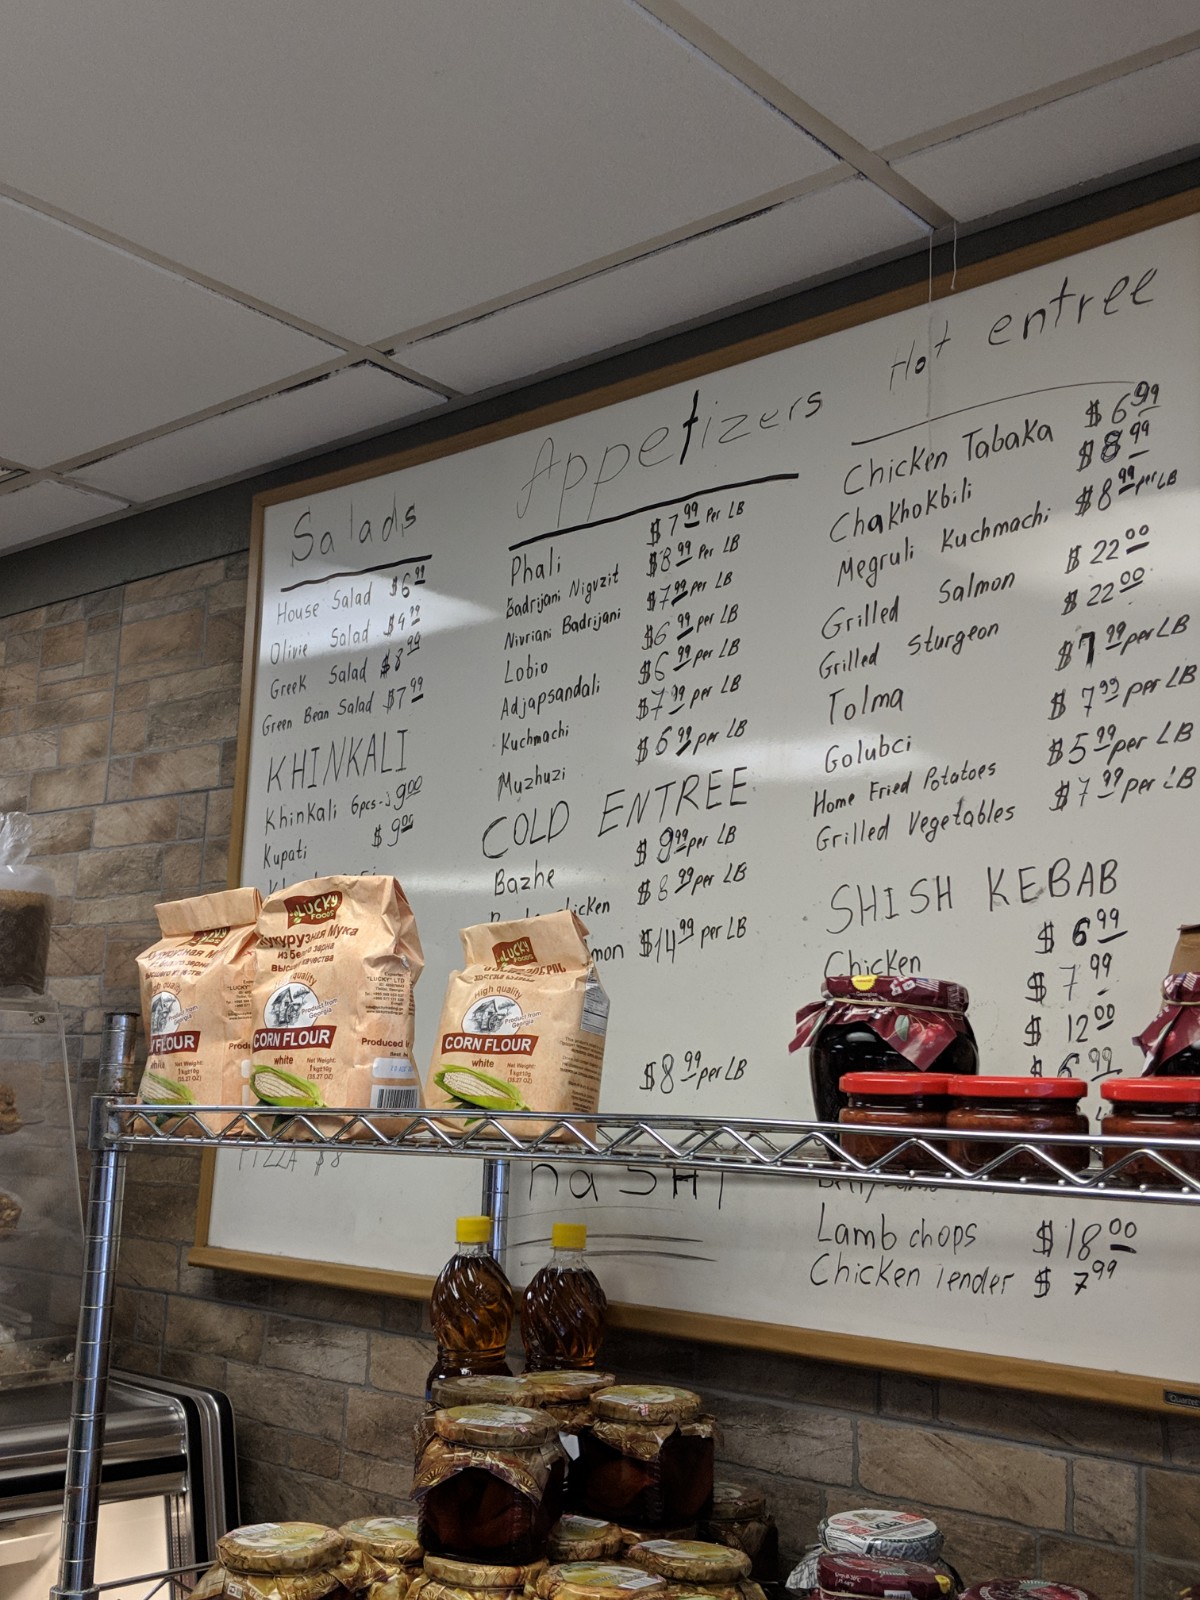 Salads
House Salad $6.99
Olivie Salad $9.99
Greek Salad $8.99
Green Bean Salad $7.99
KHINKALI
Khinkali 6pcs- 9.00
Kupati $9.00
PIZZA $8
Appetizers
Phali $7.99 Per LB
Badrijani Nigvzit $8.99 Per LB
Nivriani Badrijani $7.99 per LB
Lobio $6.99 per LB
Adjapsandali $6.99 per LB
Kuchmachi $7.99 per LB
Muzhuzi $6.99 per LB
COLD ENTREE
Bazhe $9.99 per LB
$8.99 per LB
$14.99 per LB
$8.99 per LB
Hot entree
Chicken Tabaka $6.99
Chakhokbili $8.99
Megruli Kuchmachi $8.99 per LB
Grilled Salmon $22.00
Grilled Sturgeon $22.00
Tolma $7.99 per LB
Golubci $7.99 per LB
Home Fried Potatoes $5.99 per LB
Grilled Vegetables $7.99 per LB
SHISH KEBAB
Chicken $6.99
$7.99
$12.00
$6.99
Lamb chops $18.00
Chicken Tender $7.99
LUCKY FOODS
Кукурузная Мука
из белого зерна
высшего качества
High quality
Product from Georgia
CORN FLOUR
white
Net Weight:
1kg±10g
(35.27 OZ)
Produced
LUCKY FOODS
High quality
Product from Georgia
CORN FLOUR
white
Net Weight:
1kg±10g
(35.27 OZ)
FLOUR
white
Net Weight:
1kg±10g
(35.27 OZ)